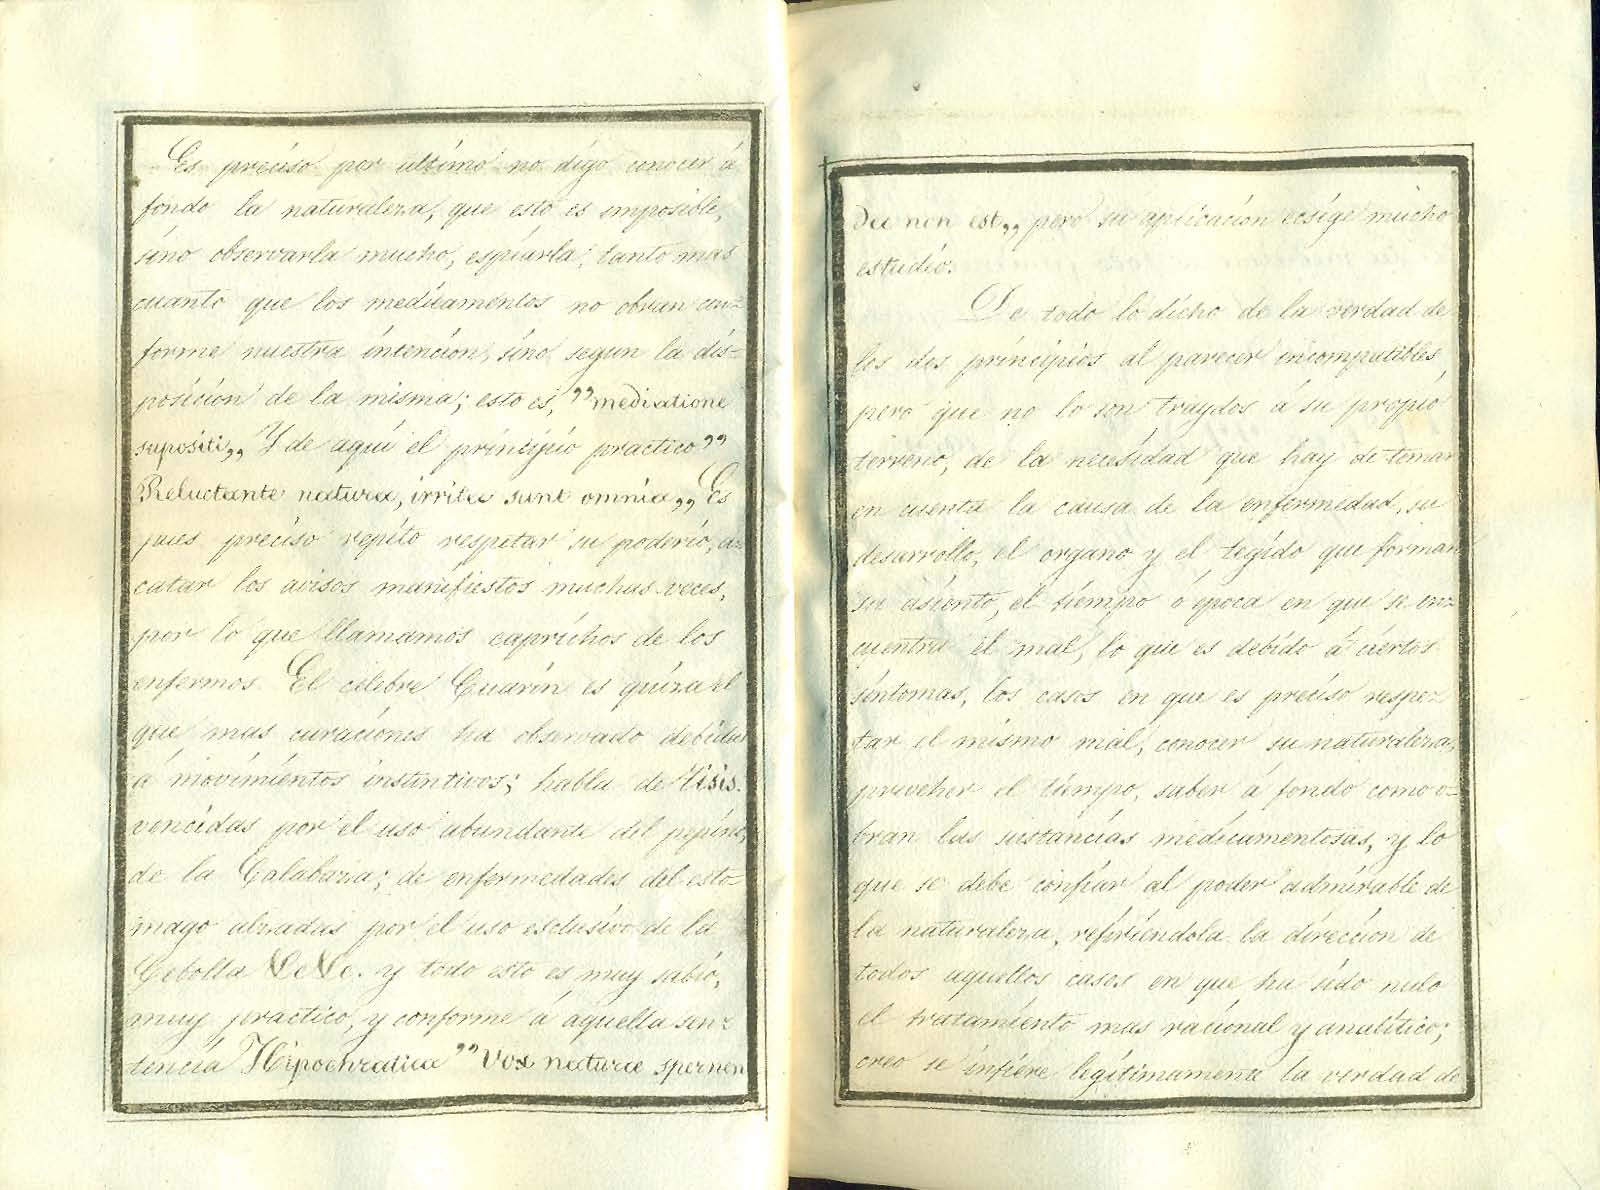 Es preciso por ultimo no digo conocer á
fondo la naturaleza, que esto es imposible,
sino observarla mucho, espiarla, tanto mas
cuanto que los medicamentos no obran con=
forme nuestra intencion, sino segun la dis=
posicion de la misma; esto es, ”mediatione
supositi„ Y de aqui el principio practico”
Reluctante natura, irrita sunt omnia„ Es
pues preciso repito respetar su poderio, a=
catar los avisos manifiestos muchas veces,
por lo que llamamos caprichos de los
enfermos. El celebre Guarin es quiza el
que mas curaciones ha observado debidas
á movimientos instintivos; habla de tisis
vencidas por el uso abundante del pepino,
de la Calabaza; de enfermedades del esto=
mago alzadas por el uso esclusivo de la
Cebolla &c&c. y todo esto es muy sabio,
muy practico, y conforme á aquella sen=
tencia Hipochratica ”Vox naturæ spernen
dæ non est„ pero su aplicacion ecsige mucho
estudio.
De todo lo dicho de la verdad de
los dos principios al parecer incompatibles,
pero que no lo son traydos á su propio
terreno, de la necesidad que hay de tomar
en cuenta la causa de la enfermedad, su
desarrollo, el organo y el tegido que forman
su asiento, el tiempo ó epoca en que se en=
cuentra el mal, lo que es debido á ciertos
sintomas, los casos en que es preciso respe=
tar el mismo mal, conocer su naturaleza,
preveher el tiempo, saber á fondo como o=
bran las sustancias medicamentosas, y lo
que se debe confiar al poder admirable de
la naturaleza, refiriendola la direccion de
todos aquellos casos en que ha sido nulo
el tratamiento mas racional y analitico;
creo se infiere legitimamente la verdad de